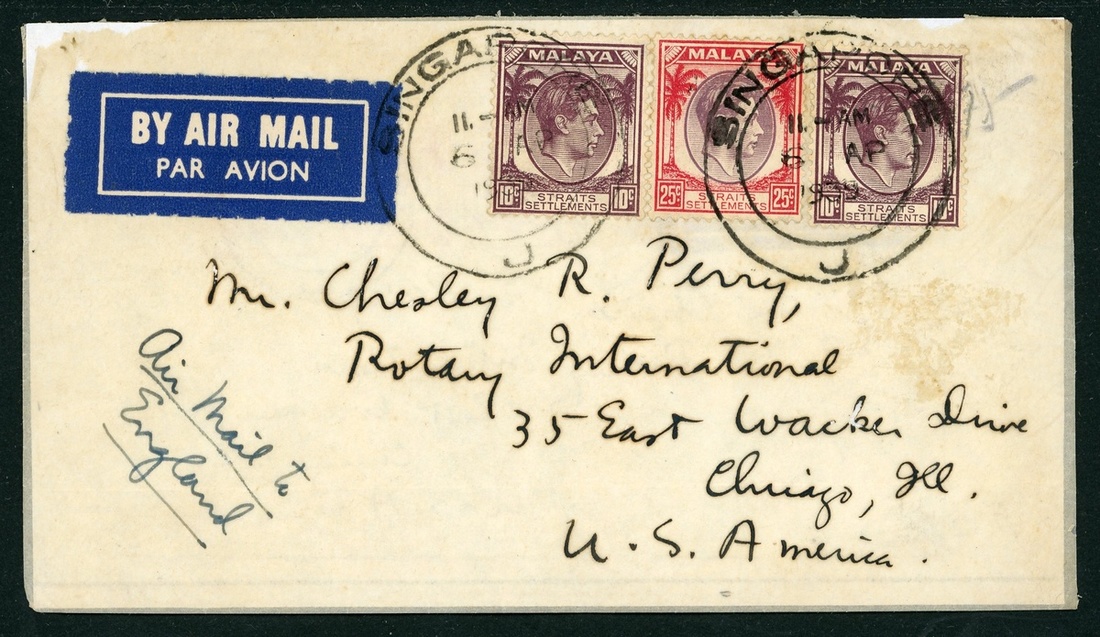 BY AIR MAIL
PAR AVION
MALAYA
10c 10c
STRAITS
SETTLEMENTS
MALAYA
25c 25c
STRAITS
SETTLEMENTS
MALAYA
10c
STRAITS
SETTLEMENTS
SINGAPORE
11.-AM
6 AP
J
SINGAPORE
11.-AM
6 AP
J
Mr. Chesley R. Perry,
Rotary International
35 East Wacker Drive
Chicago, Ill.
U. S. America.
Air Mail to
England